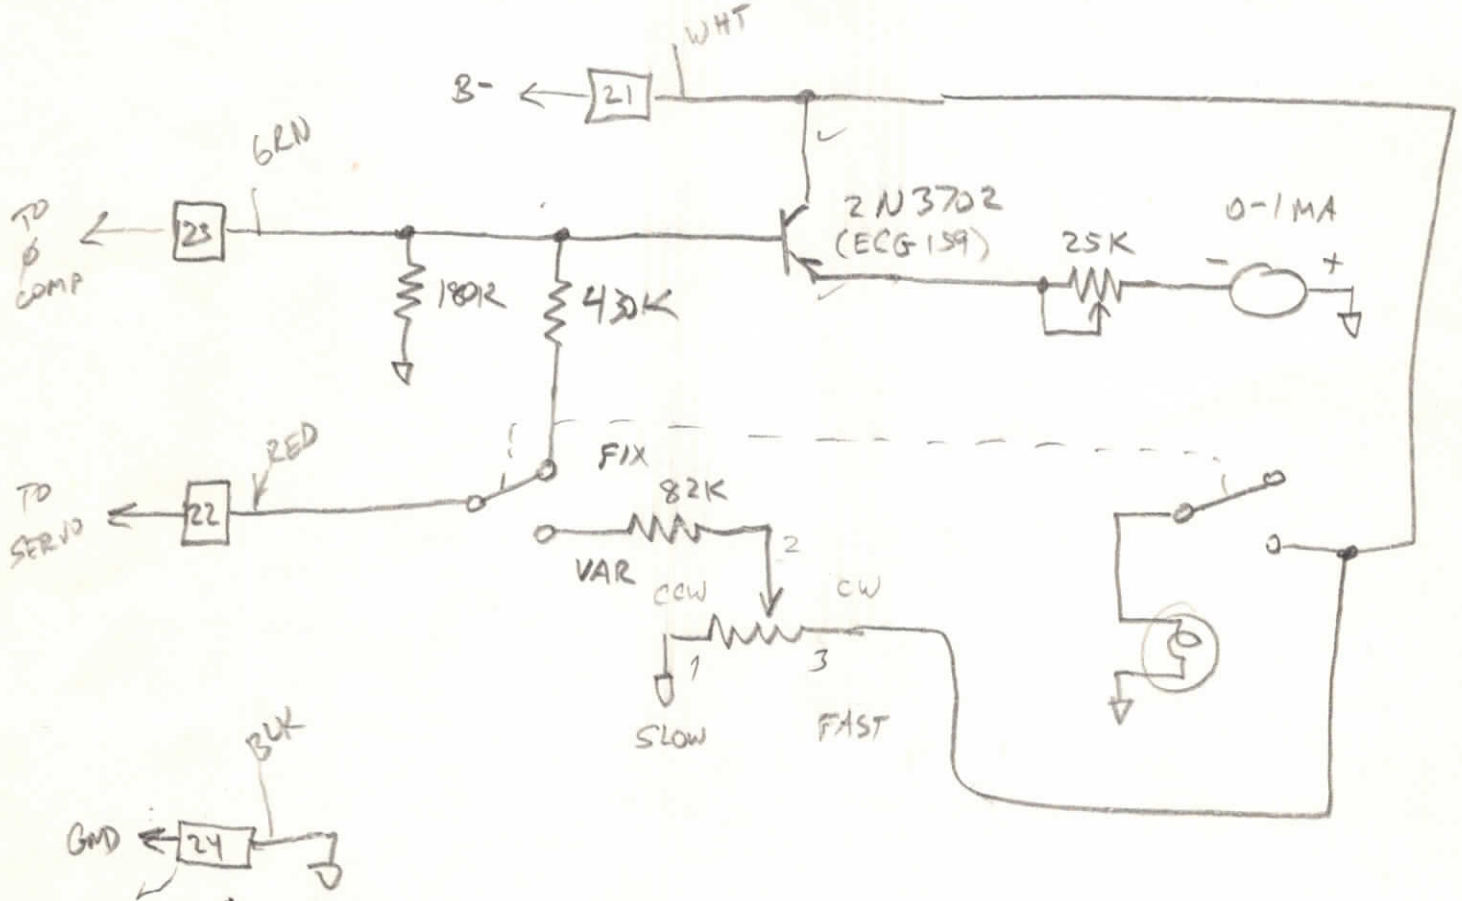 WHT
B-
21
GRN
TO
ø
COMP
23
2N3702
(ECG159)
25K
0-1MA
-
+
180K
430K
RED
TO
SERVO
22
FIX
82K
2
VAR
CCW
CW
1
3
SLOW
FAST
BLK
GND
24